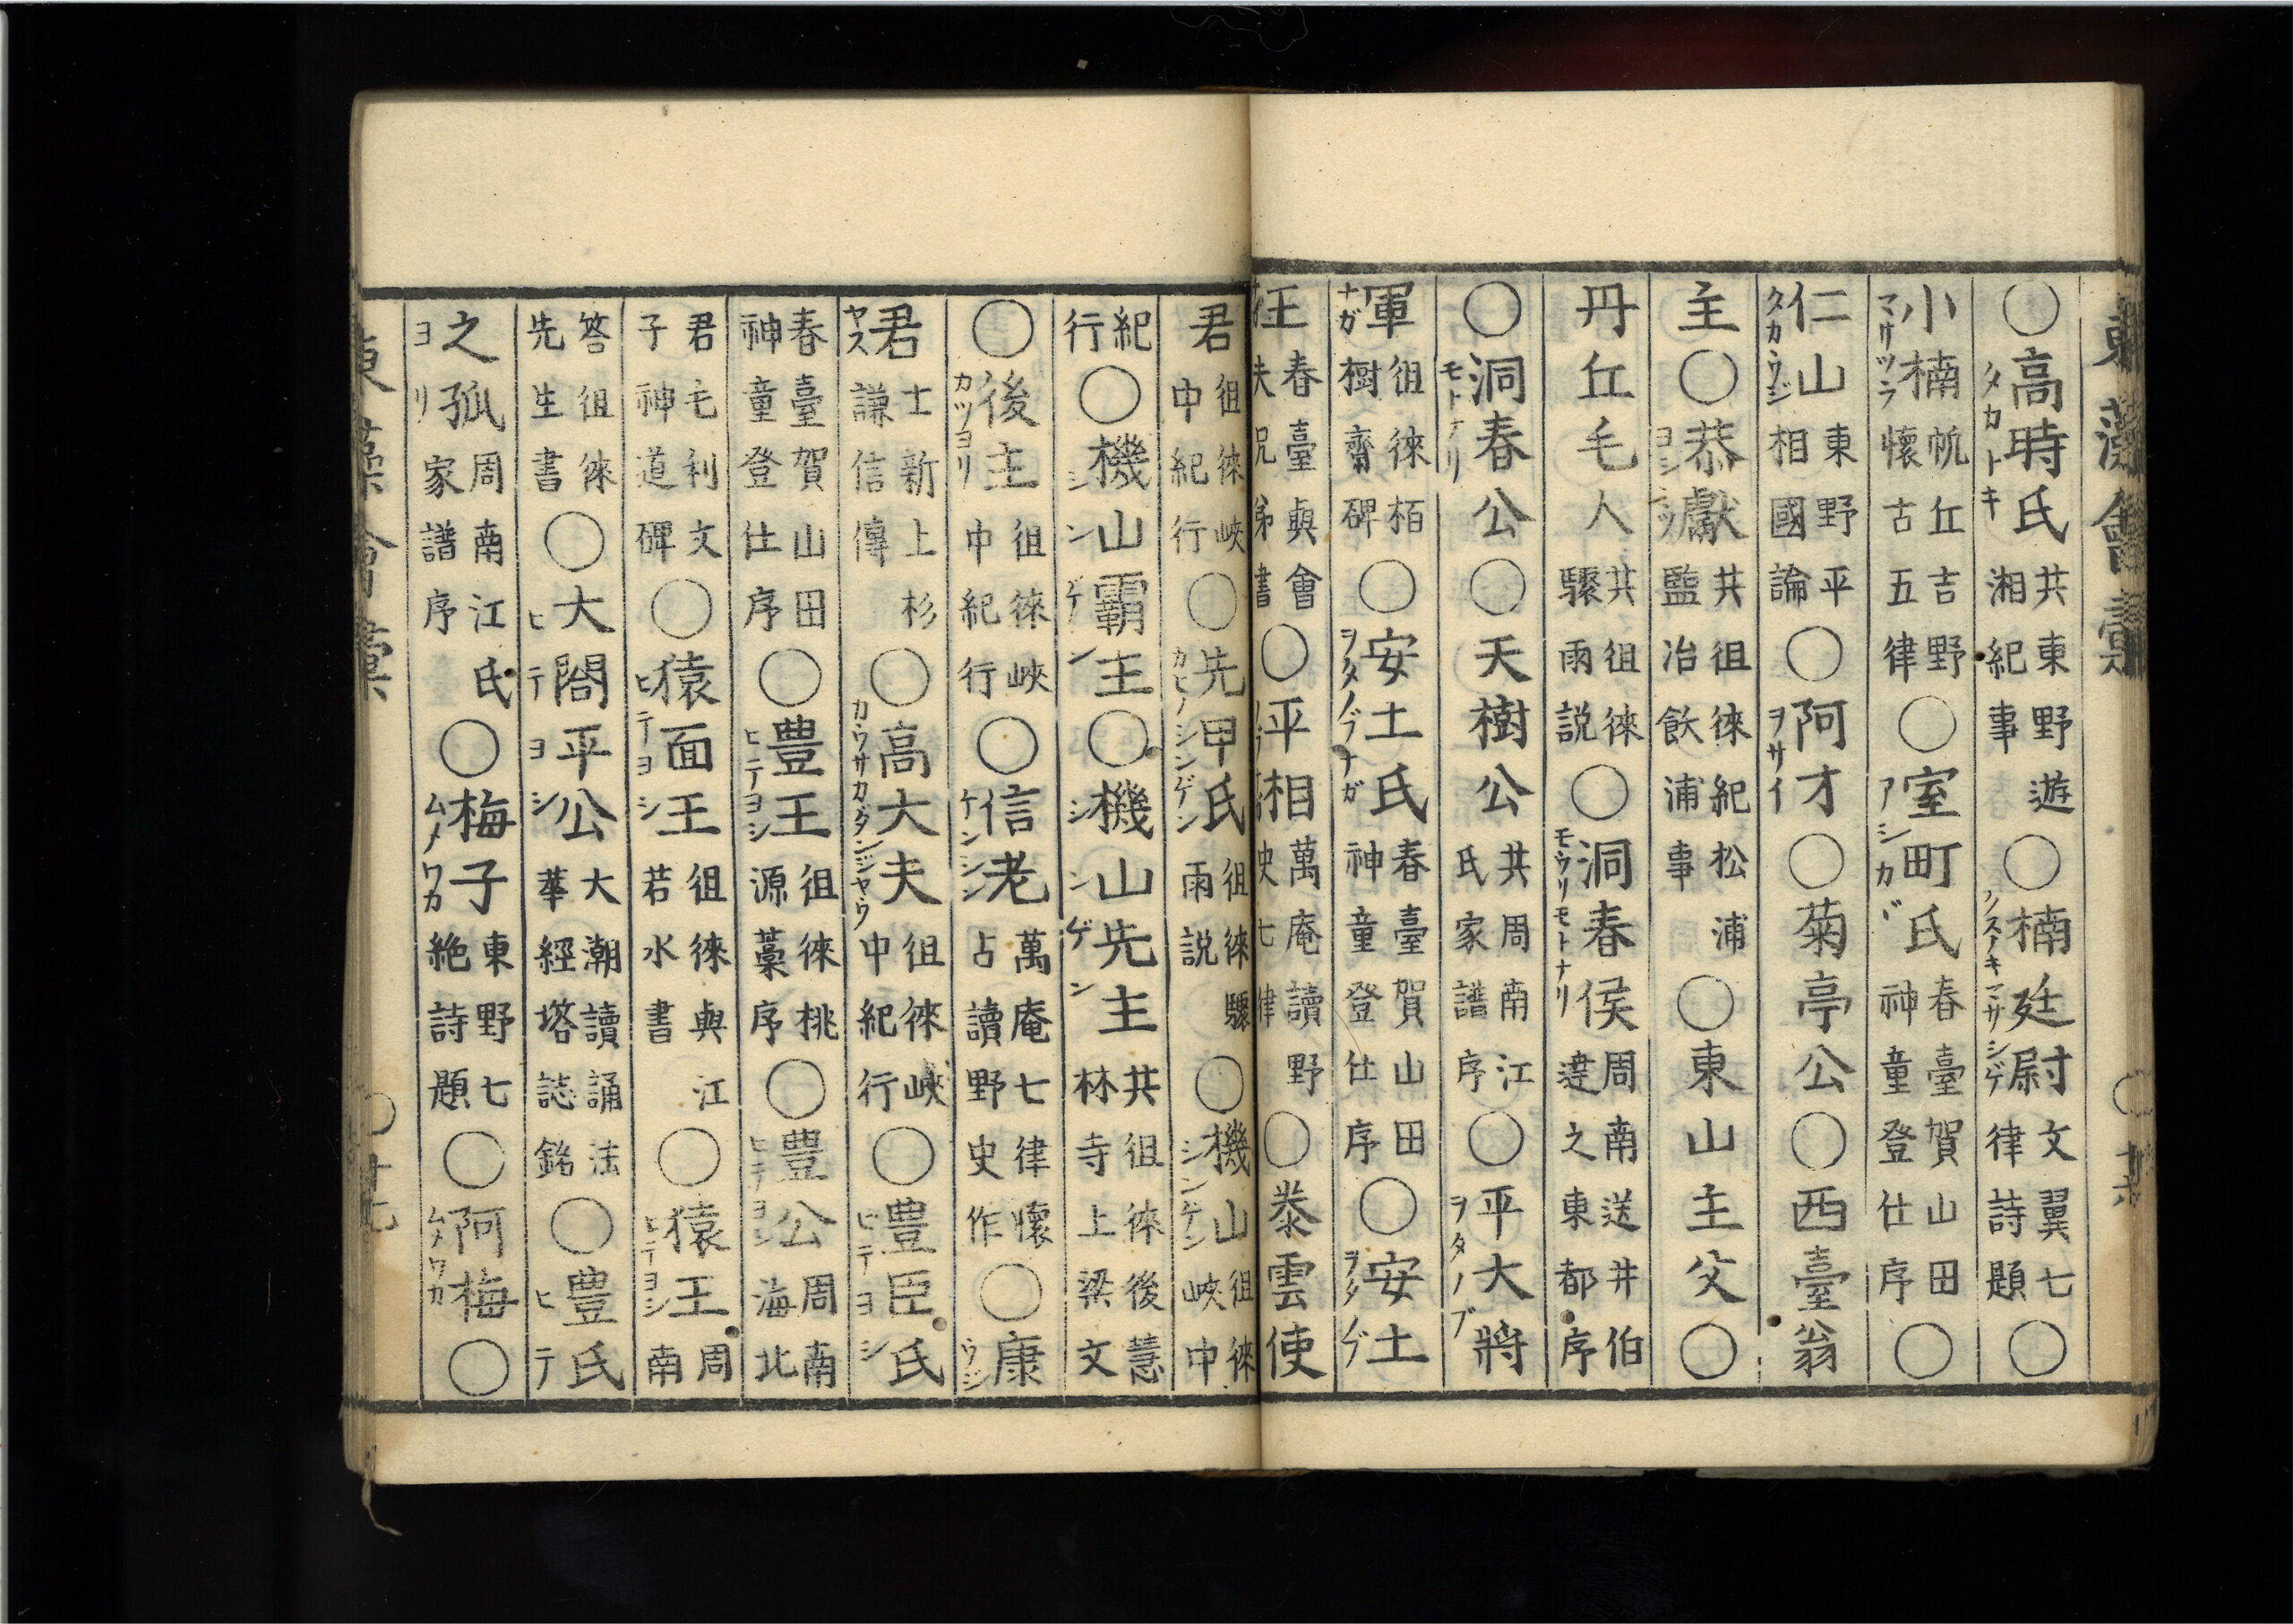 東藻會彙 〇 廿六
〇高時氏 タカトキ 共東野遊湘紀事 〇楠廷尉 クスノキマサシゲ 文翼七律詩題 〇
小楠 マサツラ 帆丘吉野懷古五律 〇室町氏 アシカヾ 春臺賀山田神童登仕序 〇
仁山 タカウジ 東野平相國論 〇阿才 ヲサイ 〇菊亭公〇西臺翁
主〇恭獻 共徂徠紀松浦監冶飲浦事 〇東山主父〇
丹丘毛人 共徂徠驟雨説 〇洞春侯 モウリモトナリ 周南送井伯達之東都序
〇洞春公 モトナリ 〇天樹公 共周南江氏家譜序 〇平大將 ヲタノブ
軍 ナガ 徂徠栢樹齋碑 〇安土氏 ヲタノブナガ 春臺賀山田神童登仕序 〇安土 ヲタノブ
王 春臺與會 弟書 〇平相 萬庵讀野史七律 〇 雲使
君 徂徠峽中紀行 〇先甲氏 カヒノシンゲン 徂徠驟雨説 〇機山 シンゲン 徂徠峽中
紀行 〇機山霸王 シンゲン 〇機山先主 シンゲン 共徂徠後慧林寺上梁文
〇後主 カツヨリ 徂徠峽中紀行 〇信老 ケンシン 萬庵七律懷占讀野史作 〇康 ウジ
君 ヤス 士新上杉謙信傳 〇高大夫 カウサカダンジヤウ 徂徠峽中紀行 〇豊臣氏 ヒテヨシ
春臺賀山田神童登仕序 〇豊王 ヒテヨシ 徂徠桃源藁序 〇豊公 ヒテヨシ 周南海北
君毛利文子神道碑 〇猿面王 ヒテヨシ 徂徠與江若水書 〇猿王 ヒテヨシ 周南
答徂徠先生書 〇大閤平公 ヒテヨシ 大潮讀誦法華經塔誌銘 〇豊氏 ヒテ
之孤 ヨリ 周南江氏家譜序 〇梅子 ムメワカ 東野七絶詩題 〇阿梅 ムメワカ 〇
東藻會彙 〇 廿七